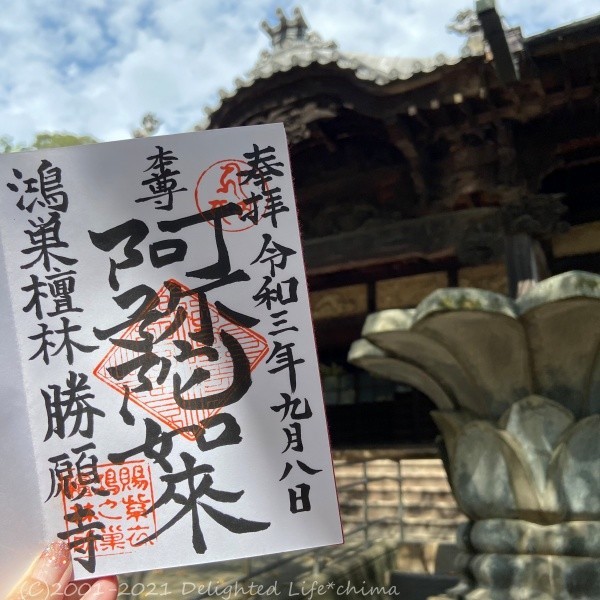 奉拝 令和三年九月八日
本尊
阿弥陀如来
鴻巣檀林 勝願寺
(C)2001-2021 Delighted Life*chima